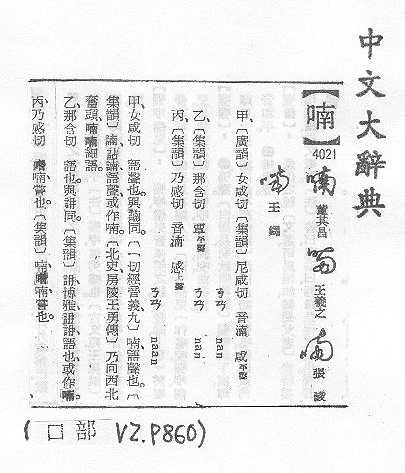 中文大辭典
【喃】
4021
喃 董其昌 喃 王羲之 喃 張淩
喃 王鐸
甲〔廣韻〕女咸切〔集韻〕尼咸切 音湳 咸平聲
ㄋㄢ nan
乙〔集韻〕那含切 覃平聲
ㄋㄢ nan
丙〔集韻〕乃感切 音湳 感上聲
ㄋㄢ naan
甲女咸切 語聲也。與諵同。〔一切經音義、九〕喃、語聲也。
〔集韻〕諵、詀諵、語聲、或作喃。〔北史、房陵王勇傳〕乃向西北
奮頭、喃喃細語。
乙那含切 語也。與諵同。〔集韻〕諵、博雅、諵諵、語也、或作喃。
丙乃感切 喃、嘗也。〔集韻〕喃、喃、嘗也。
(口部 V2.P860)